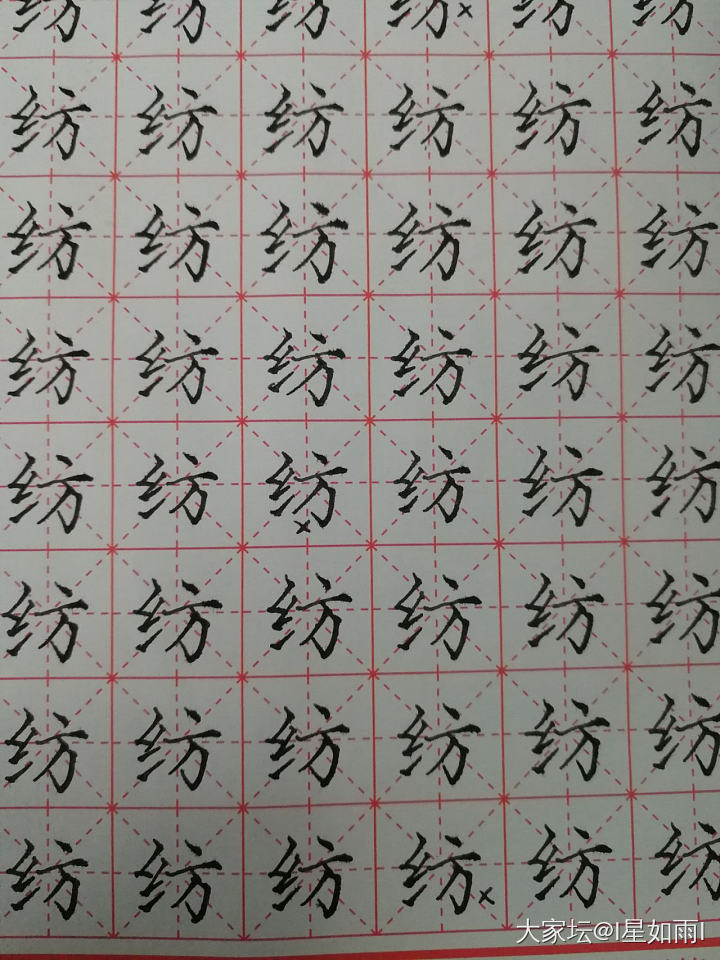 纺 纺 纺 纺 纺 纺
纺 纺 纺 纺 纺 纺
纺 纺 纺 纺 纺 纺
纺 纺 纺 纺 纺 纺
纺 纺 纺 纺 纺 纺
纺 纺 纺 纺 纺 纺
纺 纺 纺 纺 纺 纺
纺 纺 纺 纺 纺 纺
大家坛@I星如雨I